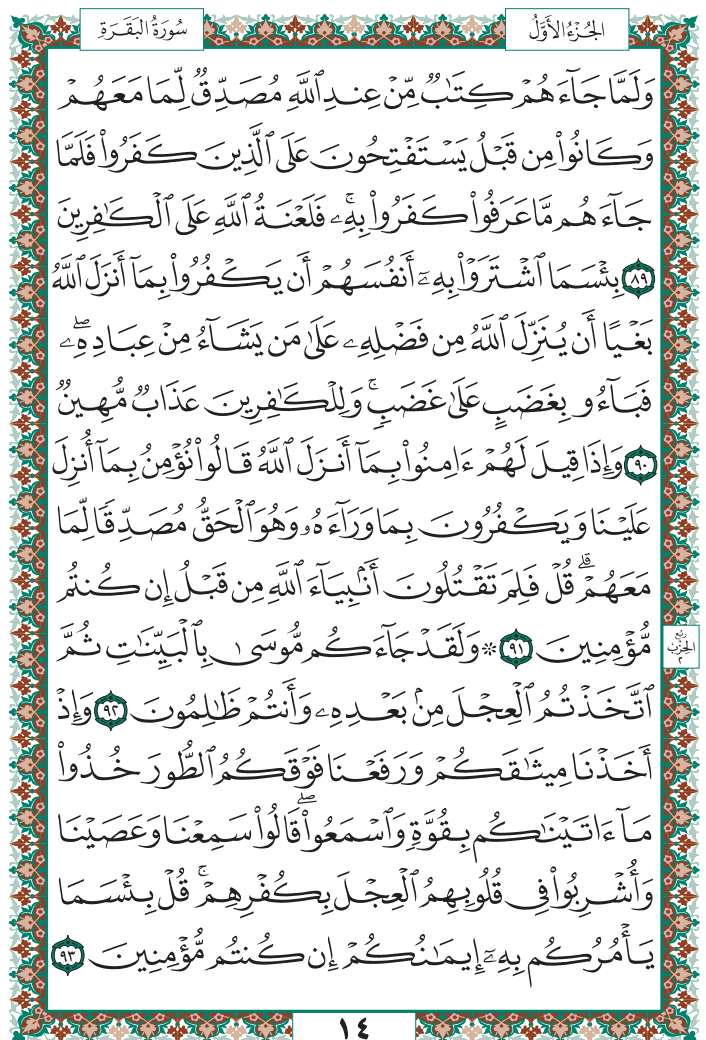 الجُزْءُ الأَوَّلُ
سُورَةُ البَقَرَةِ
وَلَمَّا جَآءَهُمۡ كِتَٰبٞ مِّنۡ عِندِ ٱللَّهِ مُصَدِّقٞ لِّمَا مَعَهُمۡ
وَكَانُواْ مِن قَبۡلُ يَسۡتَفۡتِحُونَ عَلَى ٱلَّذِينَ كَفَرُواْ فَلَمَّا
جَآءَهُم مَّا عَرَفُواْ كَفَرُواْ بِهِۦۚ فَلَعۡنَةُ ٱللَّهِ عَلَى ٱلۡكَٰفِرِينَ
٨٩ بِئۡسَمَا ٱشۡتَرَوۡاْ بِهِۦٓ أَنفُسَهُمۡ أَن يَكۡفُرُواْ بِمَآ أَنزَلَ ٱللَّهُ
بَغۡيًا أَن يُنَزِّلَ ٱللَّهُ مِن فَضۡلِهِۦ عَلَىٰ مَن يَشَآءُ مِنۡ عِبَادِهِۦۖ
فَبَآءُو بِغَضَبٍ عَلَىٰ غَضَبٖۚ وَلِلۡكَٰفِرِينَ عَذَابٞ مُّهِينٞ
٩٠ وَإِذَا قِيلَ لَهُمۡ ءَامِنُواْ بِمَآ أَنزَلَ ٱللَّهُ قَالُواْ نُؤۡمِنُ بِمَآ أُنزِلَ
عَلَيۡنَا وَيَكۡفُرُونَ بِمَا وَرَآءَهُۥ وَهُوَ ٱلۡحَقُّ مُصَدِّقٗا لِّمَا
مَعَهُمۡۗ قُلۡ فَلِمَ تَقۡتُلُونَ أَنۢبِيَآءَ ٱللَّهِ مِن قَبۡلُ إِن كُنتُم
مُّؤۡمِنِينَ ٩١ ۞ وَلَقَدۡ جَآءَكُم مُّوسَىٰ بِٱلۡبَيِّنَٰتِ ثُمَّ
ٱتَّخَذۡتُمُ ٱلۡعِجۡلَ مِنۢ بَعۡدِهِۦ وَأَنتُمۡ ظَٰلِمُونَ ٩٢ وَإِذۡ
أَخَذۡنَا مِيثَٰقَكُمۡ وَرَفَعۡنَا فَوۡقَكُمُ ٱلطُّورَ خُذُواْ
مَآ ءَاتَيۡنَٰكُم بِقُوَّةٖ وَٱسۡمَعُواْۖ قَالُواْ سَمِعۡنَا وَعَصَيۡنَا
وَأُشۡرِبُواْ فِي قُلُوبِهِمُ ٱلۡعِجۡلَ بِكُفۡرِهِمۡۚ قُلۡ بِئۡسَمَا
يَأۡمُرُكُم بِهِۦٓ إِيمَٰنُكُمۡ إِن كُنتُم مُّؤۡمِنِينَ ٩٣
رُبْع
الحِزْب
٢
١٤